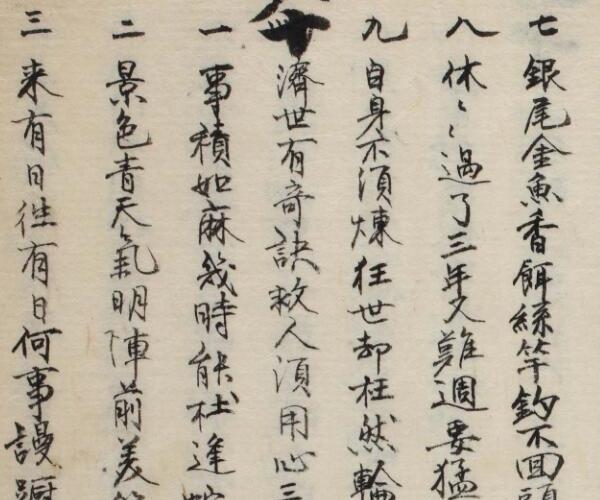 七 銀尾金魚香餌絲竿釣不回頭
八 休々過了三年又難週要猛
九 自身不須煉狂世却枉然輪
十 濟世有奇訣救人須用心三
一 事積如麻幾時能杜逢
二 景色青天氣明陣前美
三 来有日往有日何事謾蹰